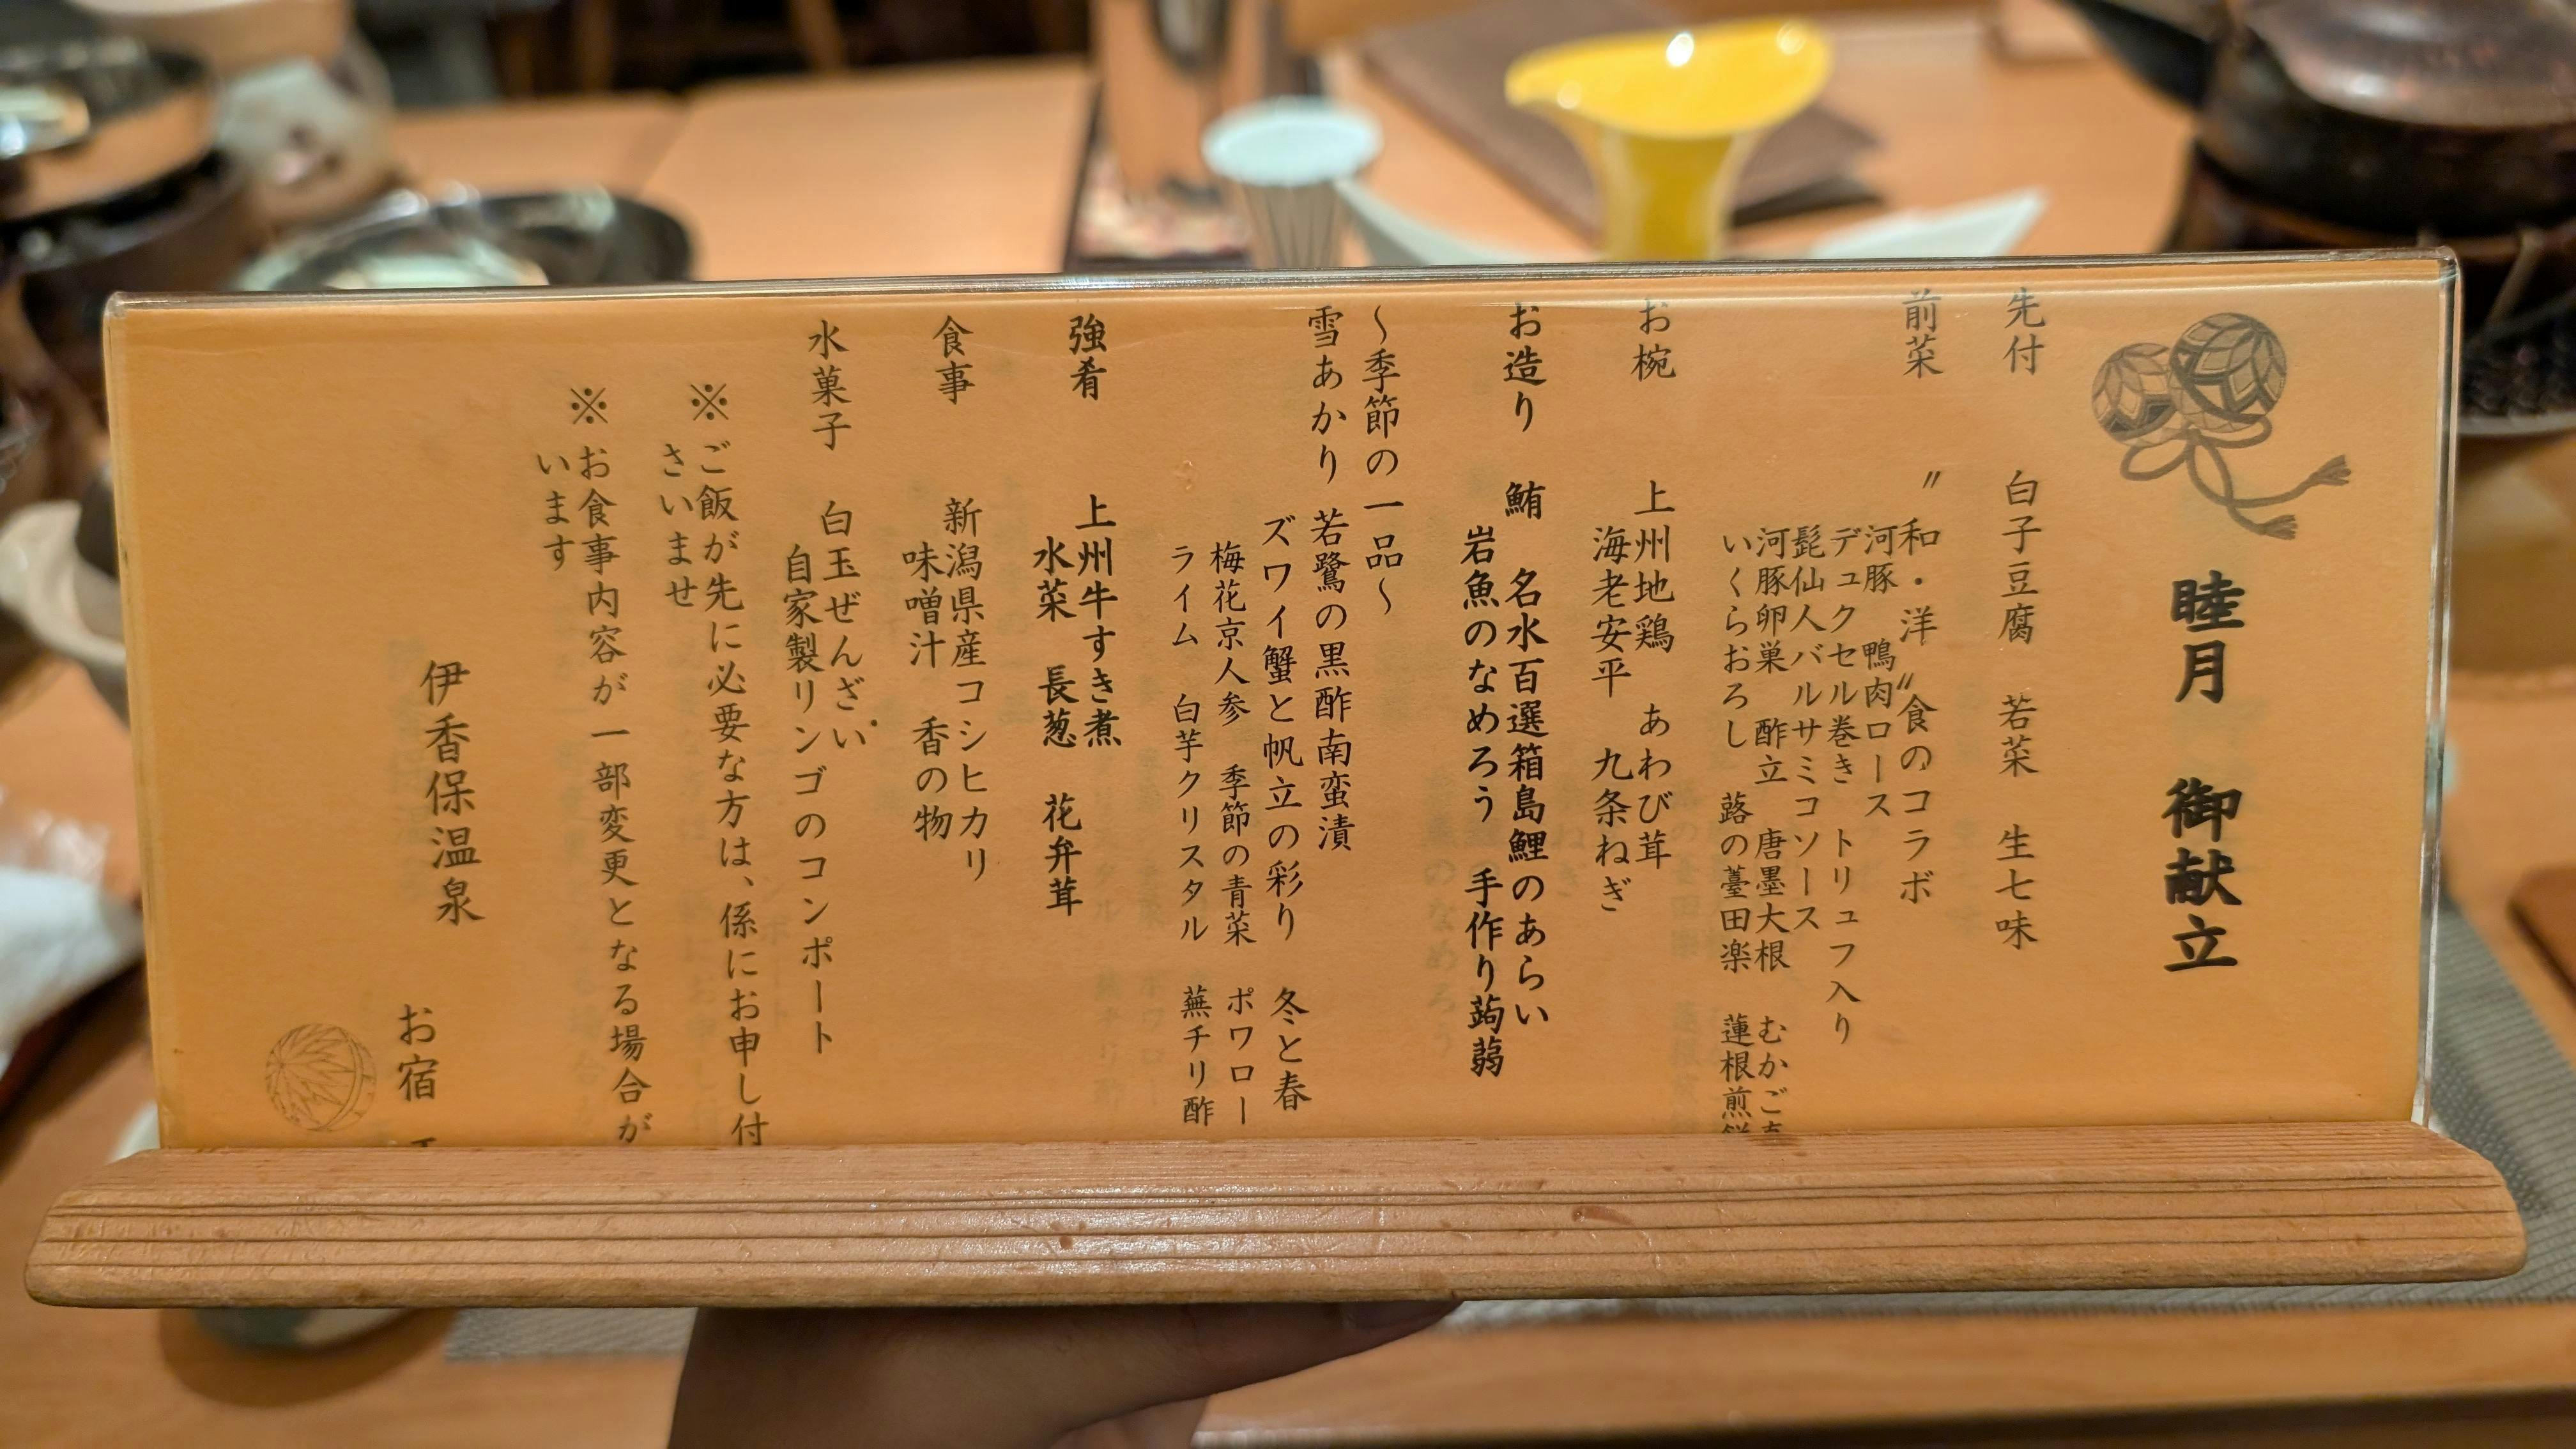 睦月 御献立
先付 白子豆腐 若菜 生七味
前菜 〃和・洋〃食のコラボ
河豚 鴨肉ロース
デュクセル巻き トリュフ入り
髭仙人バルサミコソース
河豚卵巣 酢立 唐墨大根 むかご
いくらおろし 蕗の薹田楽 蓮根煎餅
お椀 上州地鶏 あわび茸
海老安平 九条ねぎ
お造り 鮪 名水百選箱島鯉のあらい
岩魚のなめろう 手作り蒟蒻
～季節の一品～
雪あかり 若鷺の黒酢南蛮漬
ズワイ蟹と帆立の彩り 冬と春
梅花京人参 季節の青菜 ポワロー
ライム 白芋クリスタル 蕪チリ酢
強肴 上州牛すき煮
水菜 長葱 花弁茸
食事 新潟県産コシヒカリ
味噌汁 香の物
水菓子 白玉ぜんざい
自家製リンゴのコンポート
※ご飯が先に必要な方は、係にお申し付
さいませ
※お食事内容が一部変更となる場合が
います
伊香保温泉
お宿